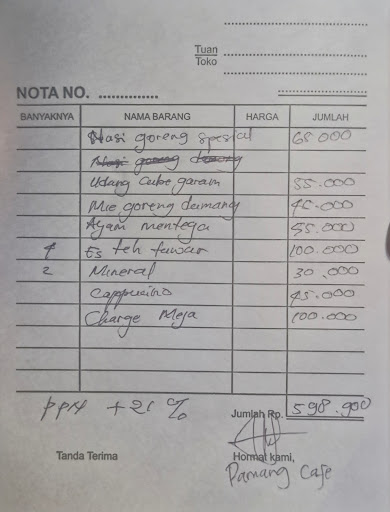 Tuan
Toko
NOTA NO. ..............
BANYAKNYA NAMA BARANG HARGA JUMLAH
Nasi goreng spesial 65.000
Nasi goreng
Udang cabe garam 55.000
Mie goreng damang 45.000
Ayam mentega 55.000
4 Es teh tawar 100.000
2 Mineral 30.000
Cappucino 45.000
Charge Meja 100.000
PPN +21 %
Jumlah Rp. 598.900
Tanda Terima Hormat kami,
Damang Cafe